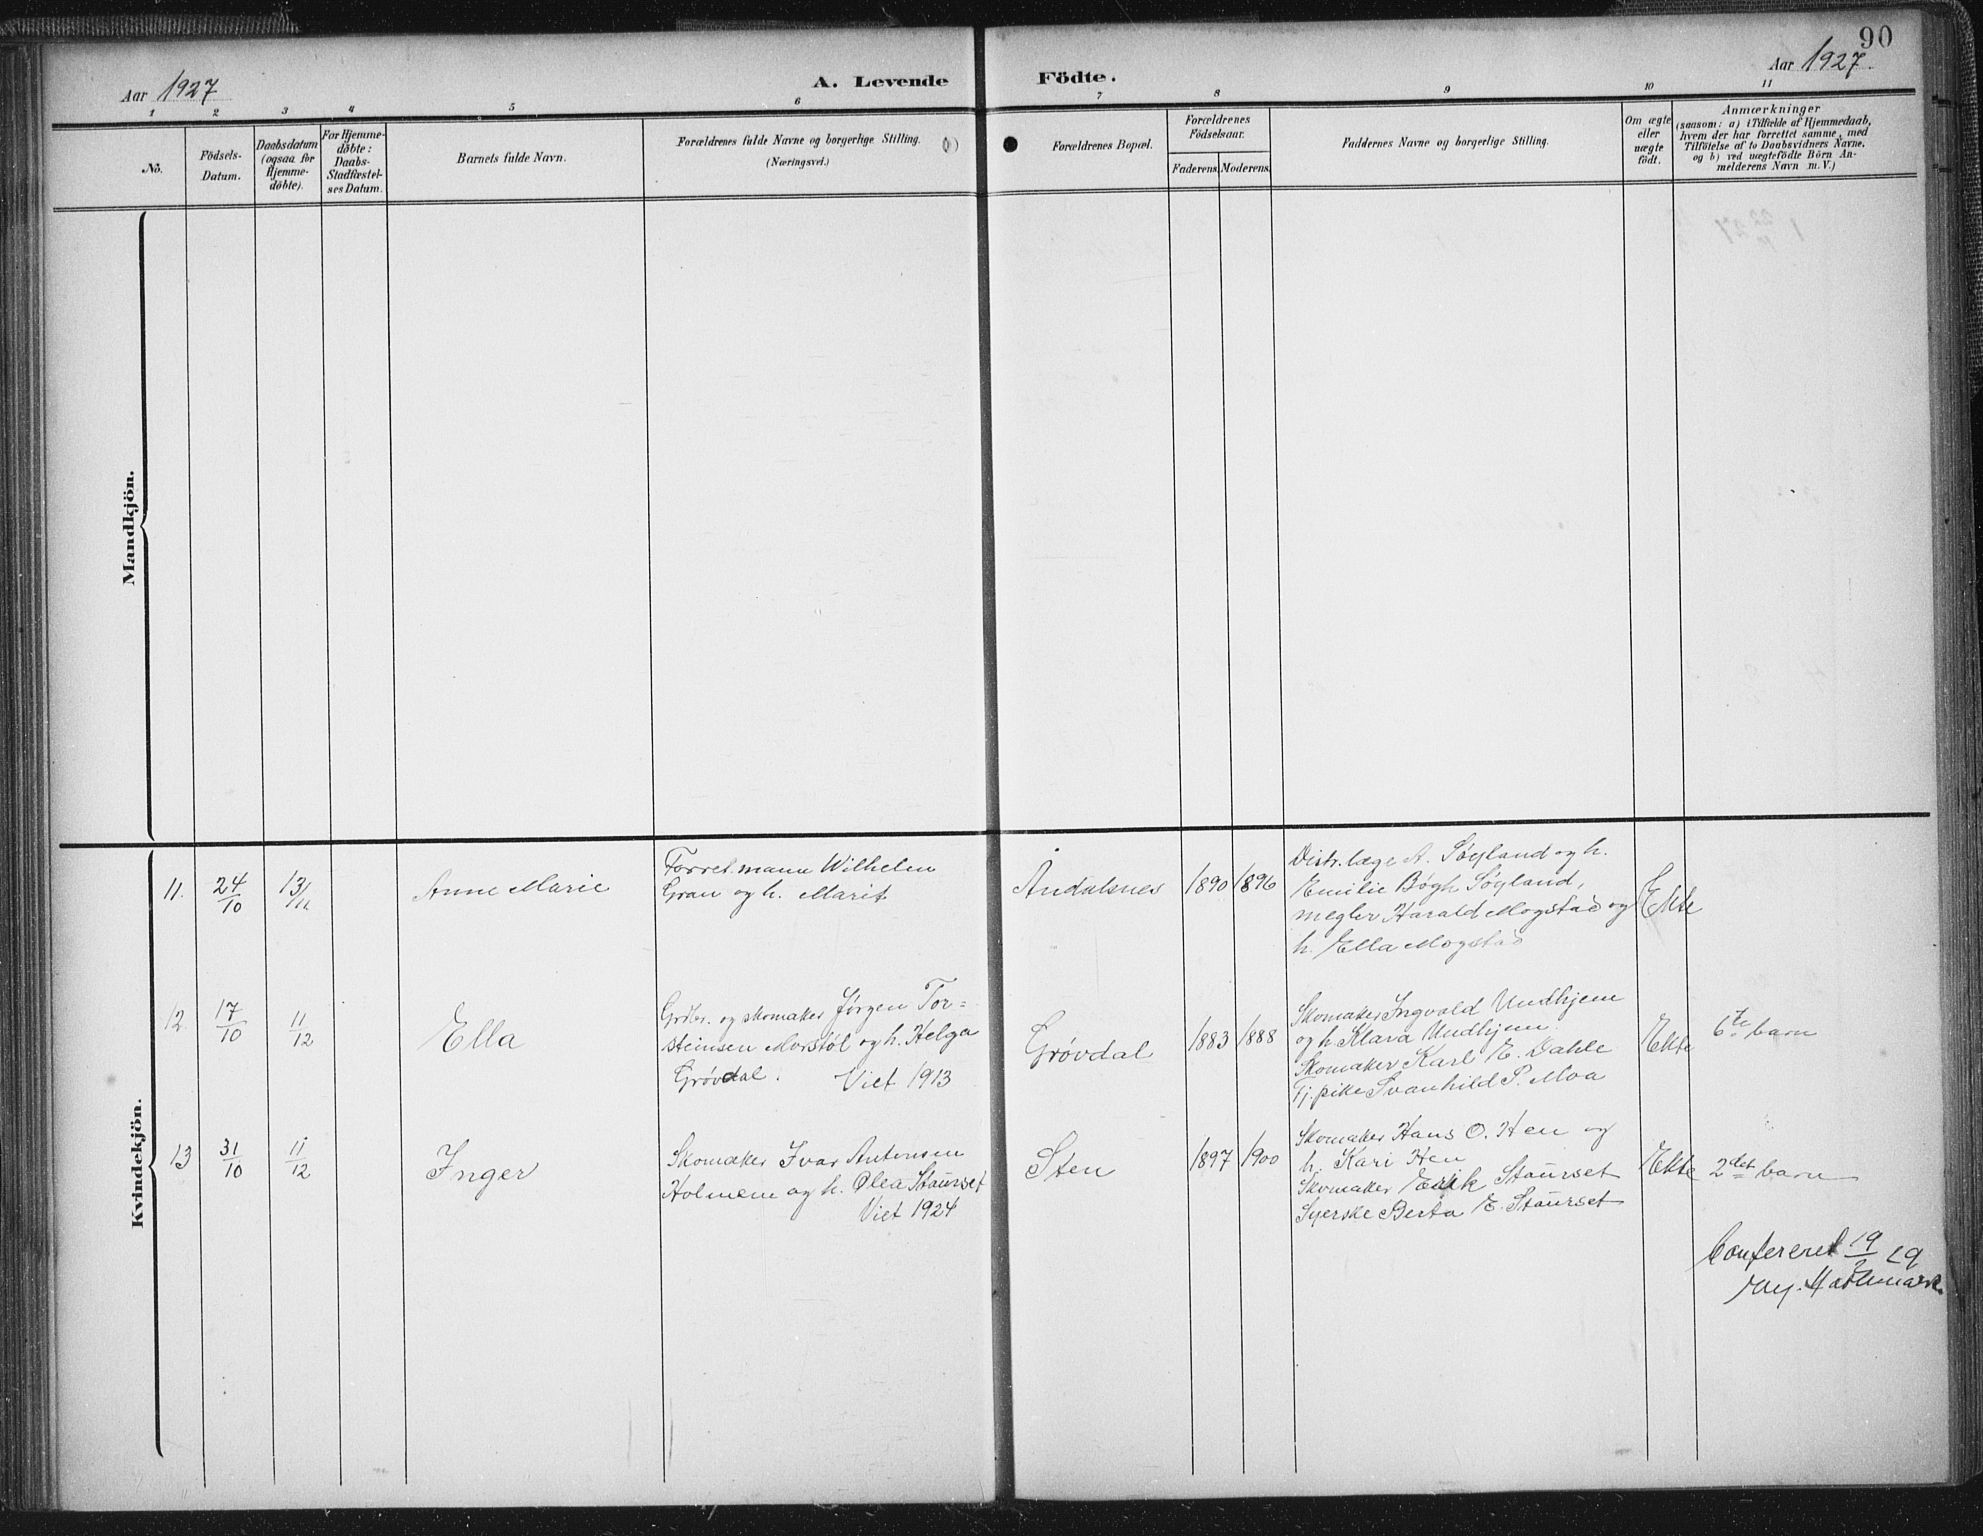 90
Aar 1927
A. Levende
Födte.
Aar 1927.
1 2 3 4 5 6 7 8 9 10 11
No.
Födsels-
Datum.
Daabsdatum
(ogsaa for
Hjemme-
döbte).
For Hjemme-
döbte:
Daabs-
Stadfæstel-
ses Datum.
Barnets fulde Navn.
Forældrenes fulde Navne og borgerlige Stilling.
(Næringsvei.)
Forældrenes Bopæl.
Forældrenes
Födselsaar.
Faderens. Moderens.
Faddernes Navne og borgerlige Stilling.
Om ægte
eller
uægte
födt.
Anmærkninger
(saasom: a) i Tilfælde af Hjemmedaab,
hvem der har forrettet samme, med
Tilföielse af to Daabsvidners Navne,
og b) ved uægtefödte Börn An-
melderens Navn m. V.)
Mandkjön.
Kvindekjön.
11. 24/10 13/11
Anne Marie
Forret.mann Wilhelm
Gran og h. Marit
Åndalsnes
1890 1896
Distr.læge A. Søyland og h.
Emilie Bøgh Søyland,
megler Harald Mogstad og
h. Ella Mogstad
Ekte
12 17/10 11/12
Ella
Grdbr. og skomaker Jørgen Tor=
steinsen Morstøl og h. Helga
Grøvdal. Viet 1913
Grøvdal
1883 1888
Skomaker Ingvald Undhjem
og h. Klara Undhjem.
Skomaker Karl E. Dahle
Tj.pike Svanhild P. Moa
Ekte
6te barn
13 31/10 11/12
Inger
Skomaker Ivar Antonsen
Holmem og h. Olea Staurset
Viet 1924
Sten
1897 1900
Skomaker Hans O. Hen og
h. Kari Hen
Skomaker Erik Staurset
Syerske Berta E. Staurset
Ekte
2det barn
Confereret 19/ 29